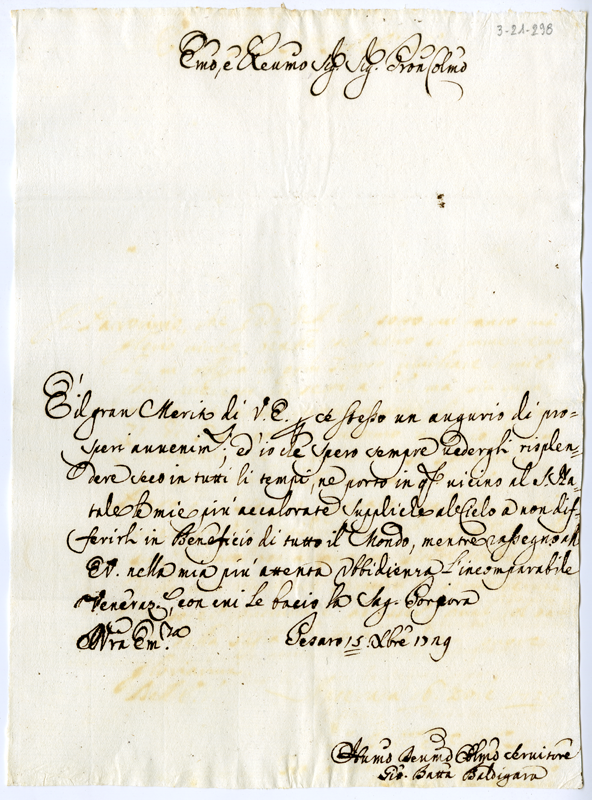 3-21-296
Emo, e Reumo Sig. Sig. Pron Colmo
È il gran Merito di V. E. p se stesso un augurio di pro=
speri auuenimti, ed io che spero sempre uedergli risplen=
dere seco in tutti li tempi, ne porto in qto uicino al S. Na=
tale le mie piu' accalorate Suppliche al Cielo a non dif=
ferirli in Beneficio di tutto il Mondo, mentre rassegno all
E.V. nella mia piu' attenta Vbbidienza l'incomparabile
Veneraz.e, con cui le bacio la Sag. Porpora
Vra Em.za Pesaro 15. Xbre 1729
Humo Deumo Oblmo Seruitore
Gio. Batta Baldigara